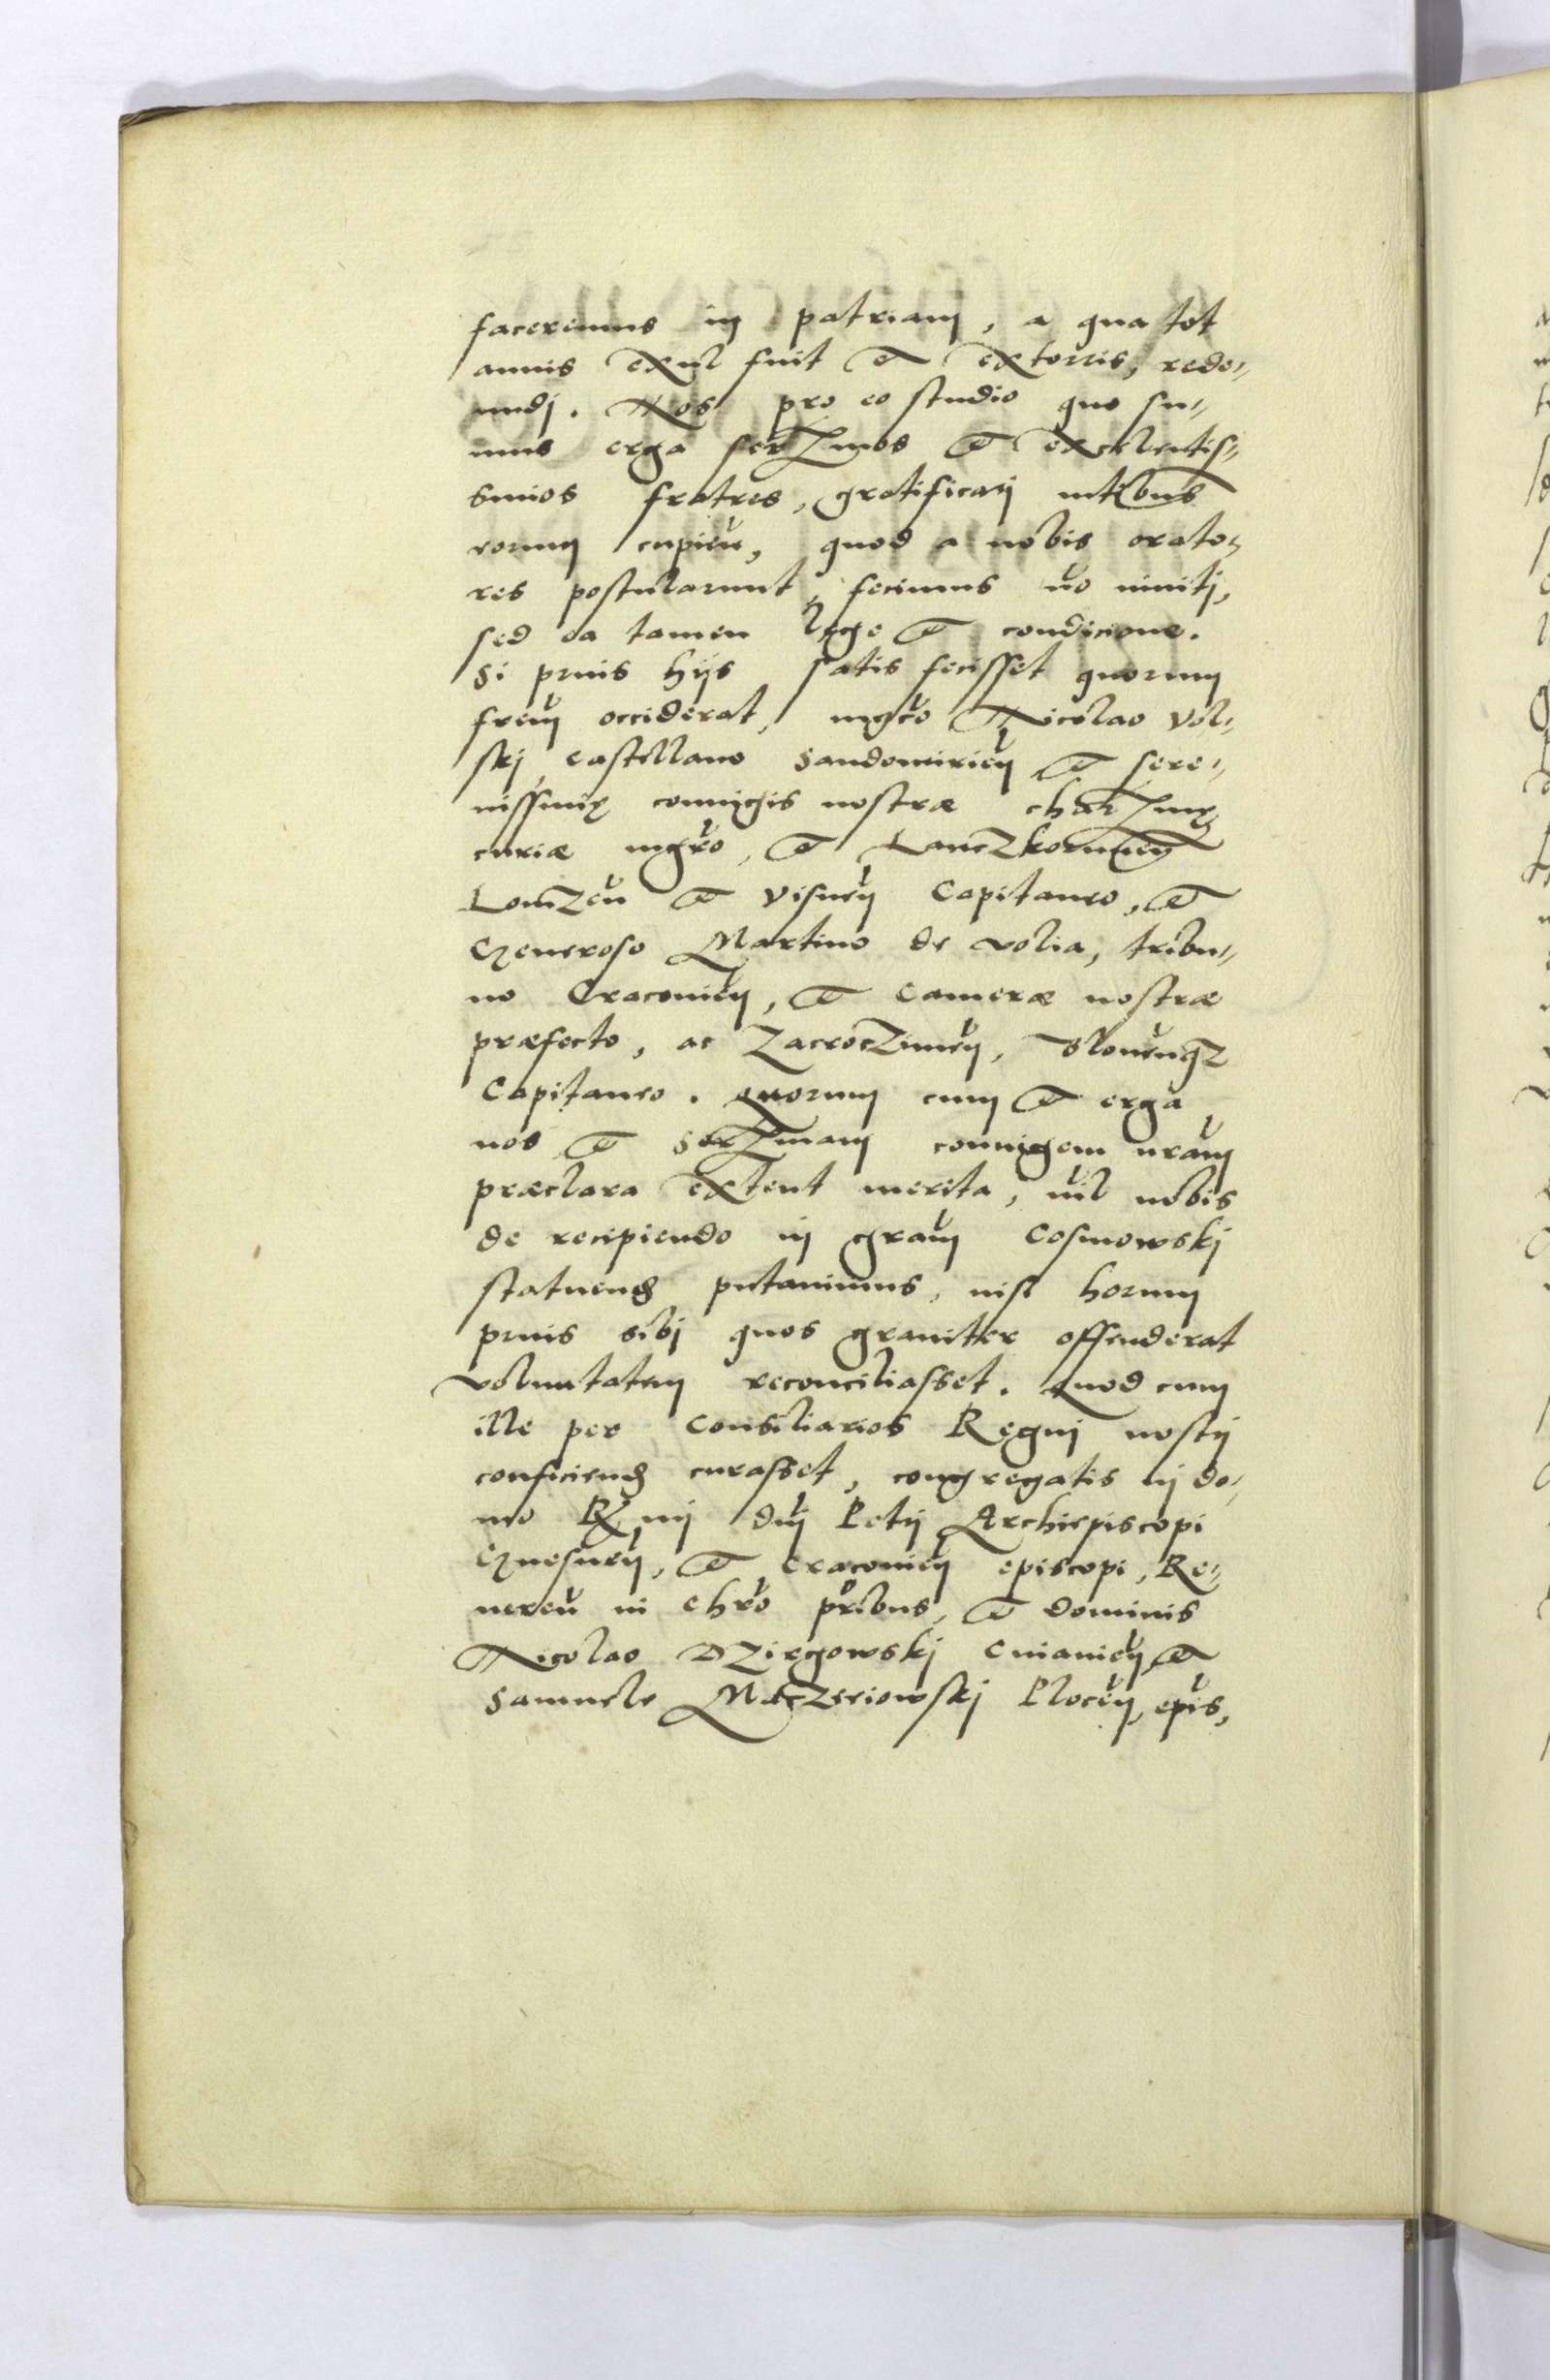 faceremus in patriam, a qua tot
annis exul fuit et extorris, rede-
undj. Nos pro eo studio quo su-
mus erga serᵐᵒs et excelentis-
simos fratres, gratificarj
eorum cupien, quod a nobis orato-
res postularunt, fecimus no inuitj,
sed ea tamen lege et condicione.
Si prius hijs satis fecisset quorum
frem occiderat, mgco Nicolao Vol-
skj castellano Sandomirien et sere-
nissimę coniugis nostræ charᵐę
curiæ mgro, et Lanczkorunen
Lomzen et Visnen Capitaneo, et
Generoso Martino de Volia, tribu-
no Cracouien, et Cameræ nostræ
præfecto, ac Zacroczimen,
Capitaneo. Quorum cum et erga
nos et Serᵐam coniugem nram
præclara extent merita, nil nobis
de recipiendo in gram Cosmowskj
statuend putauimus, nisi horum
prius sibj quos grauiter offenderat
voluntatem reconciliasset. Quod cum
ille per Consiliarios Regnj nostrj
conficiend curasset, congregatis in do-
mo Rᵐj dnj Petrj Archiepiscopi
Gnesnen, et Cracouien episcopi, Re-
ueren in Chro pribus, et dominis
Nicolao Dziergowskj Cuiauien et
Samuele Maczeiowskj Plocen, epis,